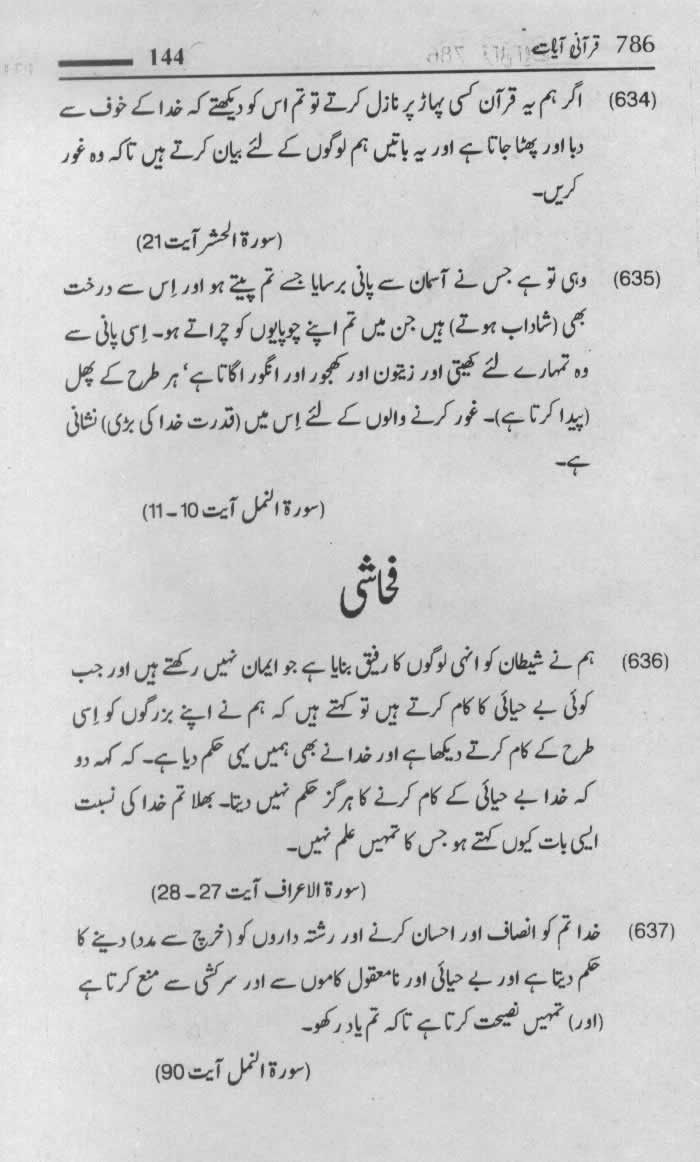 786 قرآنی آیات 144
(634) اگر ہم یہ قرآن کسی پہاڑ پر نازل کرتے تو تم اس کو دیکھتے کہ خدا کے خوف سے
دبا اور پھٹا جاتا ہے اور یہ باتیں ہم لوگوں کے لئے بیان کرتے ہیں تاکہ وہ غور
کریں۔
(سورۃ الحشر آیت 21)
(635) وہی تو ہے جس نے آسمان سے پانی برسایا جسے تم پیتے ہو اور اِس سے درخت
بھی (شاداب ہوتے) ہیں جن میں تم اپنے چوپایوں کو چراتے ہو۔ اِسی پانی سے
وہ تمہارے لئے کھیتی اور زیتون اور کھجور اور انگور اگاتا ہے‘ ہر طرح کے پھل
(پیدا کرتا ہے)۔ غور کرنے والوں کے لئے اِس میں (قدرت خدا کی بڑی) نشانی
ہے۔
(سورۃ النمل آیت 10 - 11)
فحاشی
(636) ہم نے شیطان کو انہی لوگوں کا رفیق بنایا ہے جو ایمان نہیں رکھتے ہیں اور جب
کوئی بے حیائی کا کام کرتے ہیں تو کہتے ہیں کہ ہم نے اپنے بزرگوں کو اِسی
طرح کے کام کرتے دیکھا ہے اور خدا نے بھی ہمیں یہی حکم دیا ہے۔ کہ کہہ دو
کہ خدا بے حیائی کے کام کرنے کا ہرگز حکم نہیں دیتا۔ بھلا تم خدا کی نسبت
ایسی بات کیوں کہتے ہو جس کا تمہیں علم نہیں۔
(سورۃ الاعراف آیت 27 - 28)
(637) خدا تم کو انصاف اور احسان کرنے اور رشتہ داروں کو (خرچ سے مدد) دینے کا
حکم دیتا ہے اور بے حیائی اور نامعقول کاموں سے اور سرکشی سے منع کرتا ہے
(اور) تمہیں نصیحت کرتا ہے تاکہ تم یاد رکھو۔
(سورۃ النمل آیت 90)